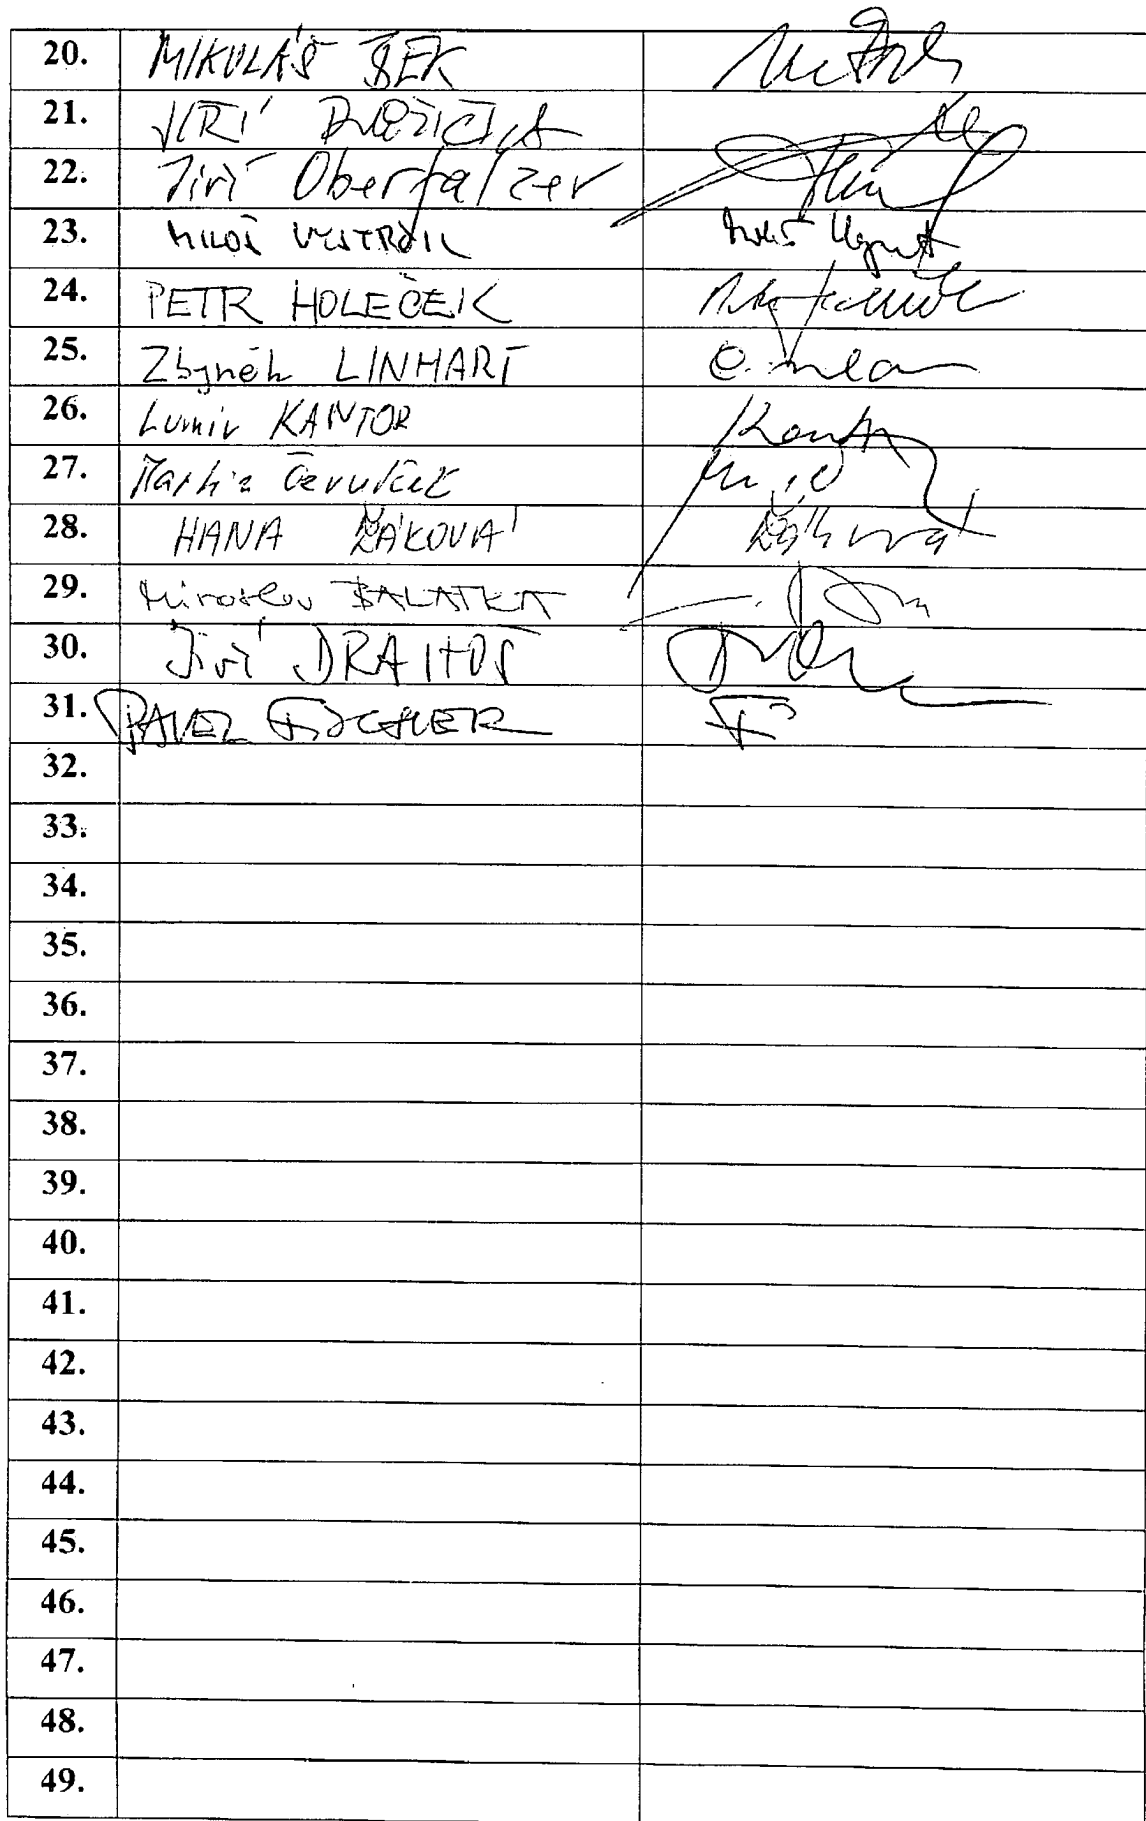 20. MIKULÁŠ BEK
21. JIŘÍ RŮŽIČKA
22. Jiří Oberfalzer
23. MILOŠ VYSTRČIL
24. PETR HOLEČEK
25. Zbyněk LINHART
26. Lumír KANTOR
27. Martin Červíček
28. HANA ŽÁKOVÁ Žáková
29. Miroslav BALATKA
30. Jiří DRAHOŠ
31. PAVEL FISCHER
32.
33.
34.
35.
36.
37.
38.
39.
40.
41.
42.
43.
44.
45.
46.
47.
48.
49.